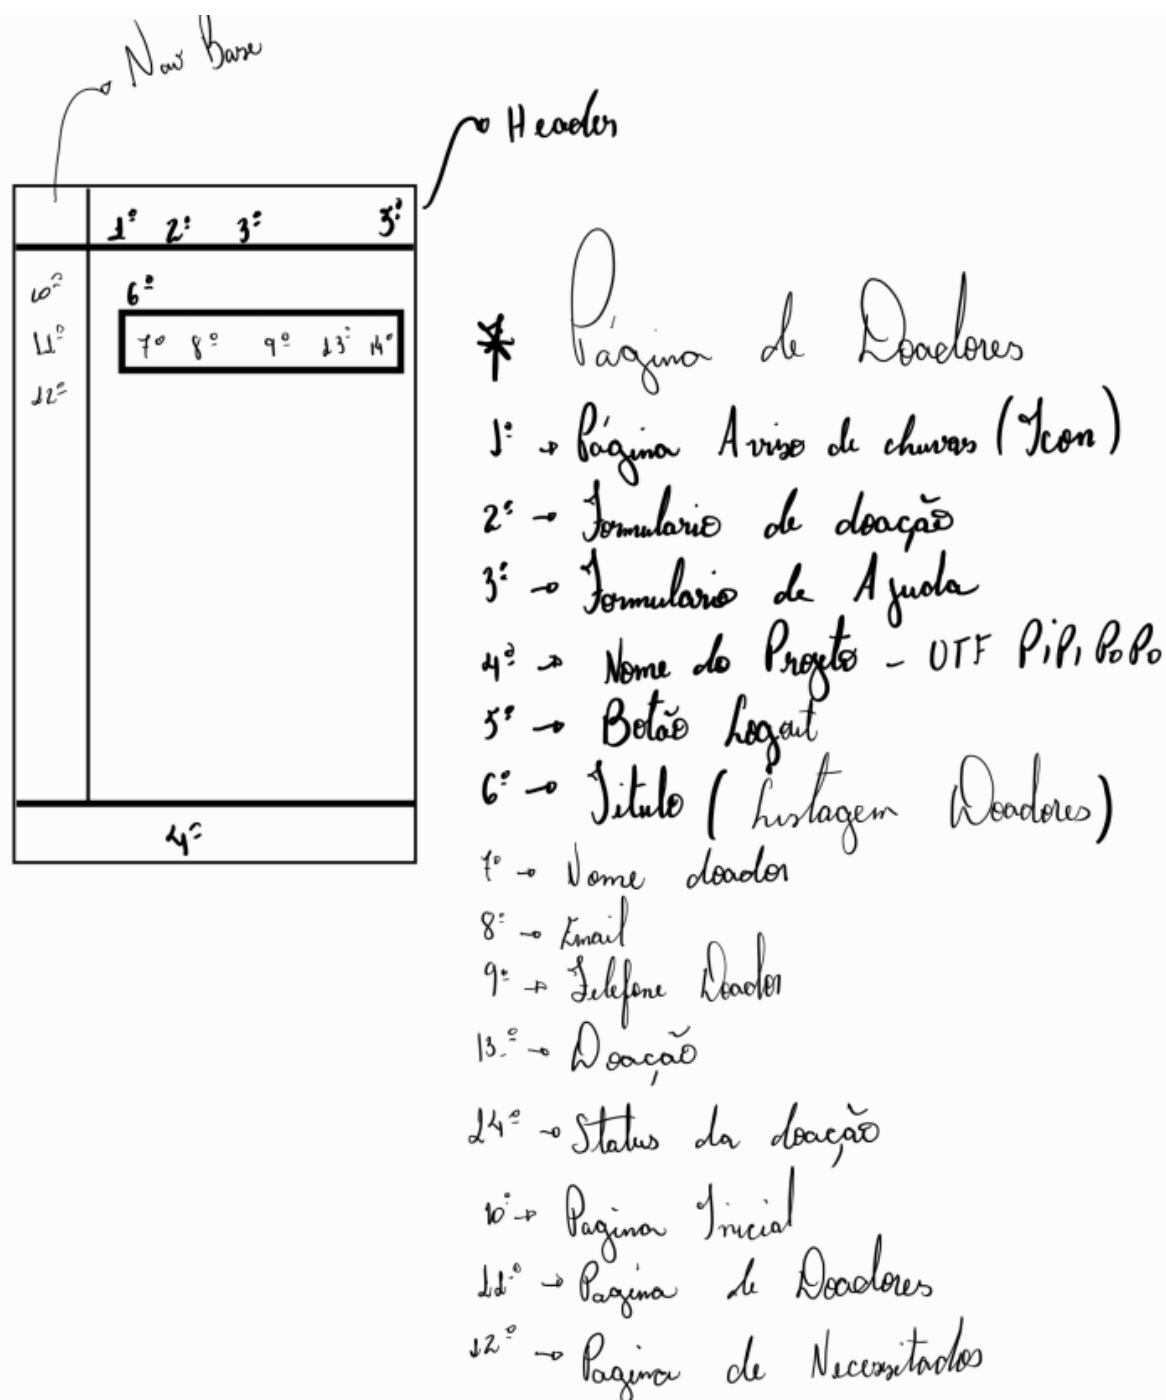 Nav Base
Header
1º 2º 3º 5º
10º 6º
11º 7º 8º 9º 13º 14º
12º
4º
* Página de Doadores
1º → Página Aviso de chuvas (Icon)
2º → Formulario de doação
3º → Formulario de Ajuda
4º → Nome do Projeto - UTF PiPi PoPo
5º → Botão Logout
6º → Titulo (Listagem Doadores)
7º → Nome doador
8º → Email
9º → Telefone Doador
13º → Doação
14º → Status da doação
10º → Pagina Inicial
11º → Pagina de Doadores
12º → Pagina de Necessitados